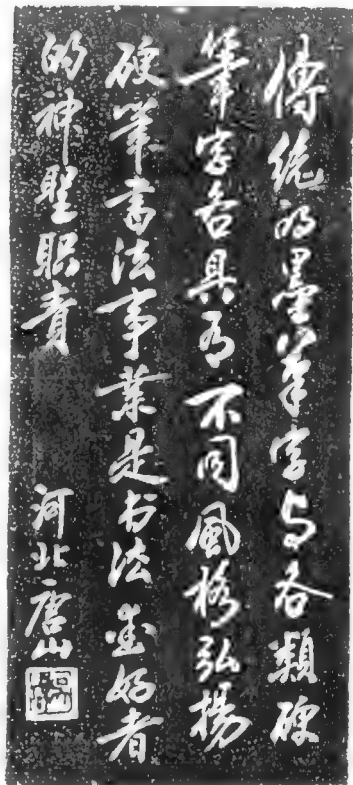 傳統的墨筆字与各類硬
筆字各具有不同風格弘揚
硬筆書法事業是书法爱好者
的神聖职責
河北唐山